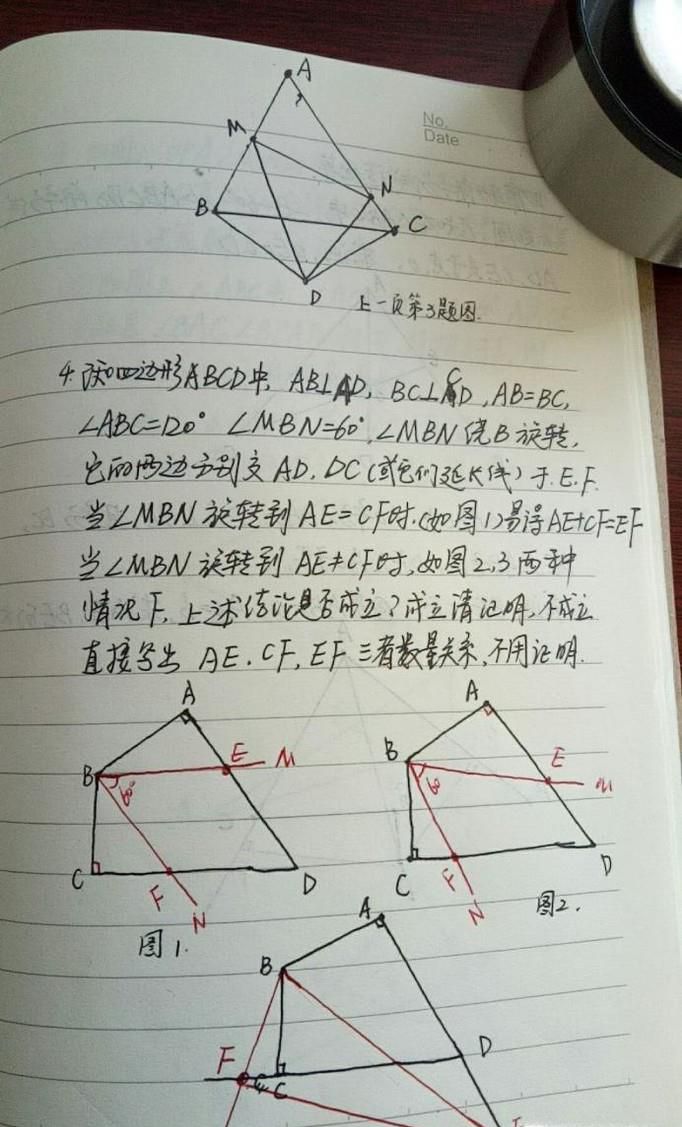 A
M
No.
Date
N
B
C
D
上一页第3题图.
4.及四边形ABCD中, AB⊥AD, BC⊥CD, AB=BC,
∠ABC=120° ∠MBN=60°,∠MBN绕B旋转,
它的两边分别交AD.DC(或它们延长线)于.E.F.
当∠MBN旋转到AE=CF时.(如图1)易得AE+CF=EF
当∠MBN旋转到AE≠CF时,如图2,3两种
情况下,上述结论是否成立?成立请证明,不成立
直接写出 AE.CF,EF三者数量关系,不用证明.
A
B
E
M
60°
C
F
D
N
图1.
A
B
E
M
60
C
F
D
N
图2.
A
B
D
F
C